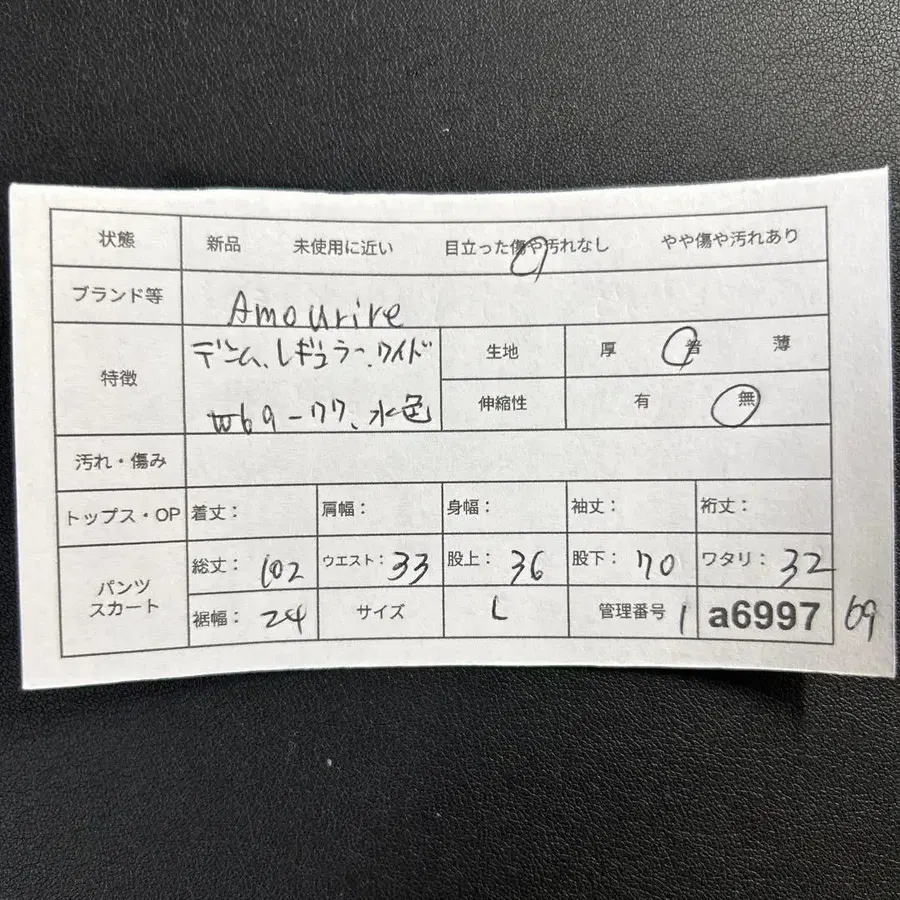 状態 新品 未使用に近い 目立った傷や汚れなし やや傷や汚れあり
ブランド等 Amourire
特徴 デニム、レギュラー、ワイド
W69-77、水色
生地 厚 普 薄
伸縮性 有 無
汚れ・傷み
トップス・OP 着丈: 肩幅: 身幅: 袖丈: 裄丈:
パンツ
スカート
総丈: 102 ウエスト: 33 股上: 36 股下: 70 ワタリ: 32
裾幅: 24 サイズ L 管理番号 1 a6997 69